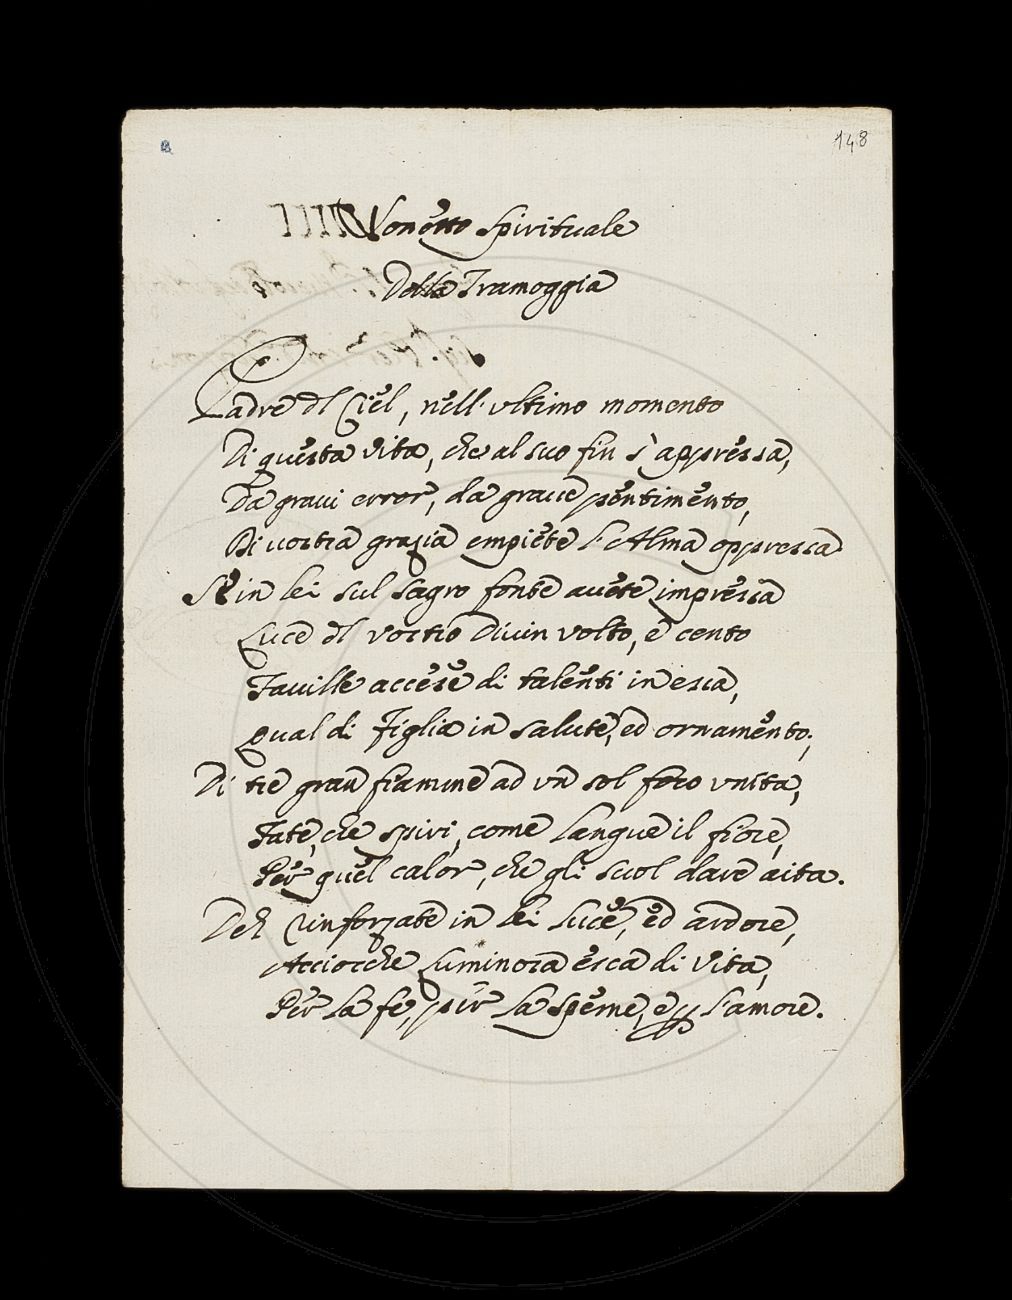 148
Sonetto Spirituale
Della Tramoggia
Padre dl Ciel, nell' vltimo momento
Di questa vita, che al suo fin s'appressa,
Da graui error, da graue pentimento,
Di uostra grazia empiete l'Alma oppressa
Se in lei sul sagro fonte auete impressa
Luce dl vostro Diuin volto, e cento
Fauille accese di talenti in essa,
Qual di Figlia in salute, ed ornamento;
Di tre gran fiamme ad vn sol foco vnita,
Fate, che spiri, come langue il fiore,
Per quel calor, che gli suol dare aita.
Deh rinforzate in lei luce, ed ardore,
Acciocche luminosa esca di vita,
Per la fe, per la speme, e p l'amore.